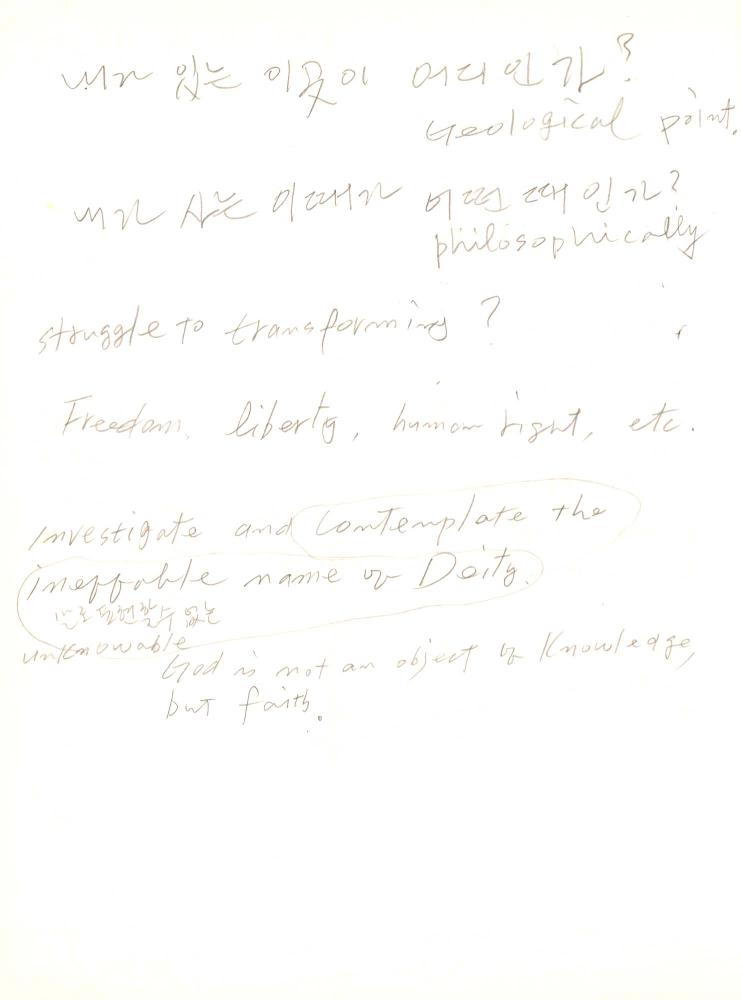 내가 있는 이곳이 어디인가?
Geological point.
내가 사는 이때가 어떤 때인가?
philosophically
struggle to transforming ?
Freedom, liberty, human right, etc.
Investigate and contemplate the
ineffable name of Deity.
말로 표현할 수 없는
unknowable
God is not an object of knowledge,
but faith.